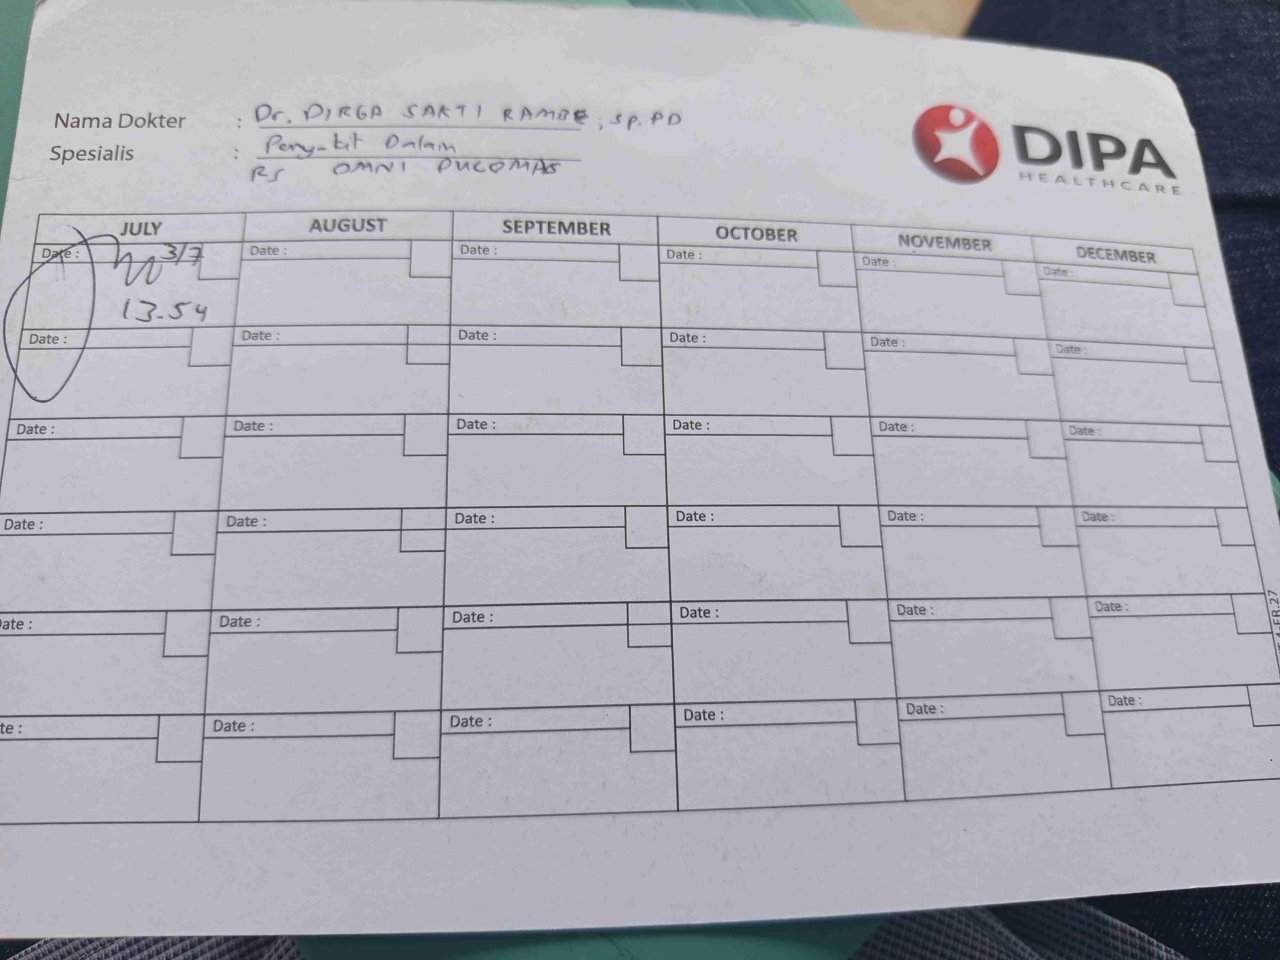 Nama Dokter : Dr. DIRGA SAKTI RAMBE, sp.PD
Spesialis : Penyakit Dalam
RS OMNI PULOMAS
DIPA
HEALTHCARE
JULY AUGUST SEPTEMBER OCTOBER NOVEMBER DECEMBER
Date : 3/7 Date : Date : Date : Date : Date :
13.54
Date : Date : Date : Date : Date : Date :
Date : Date : Date : Date : Date : Date :
Date : Date : Date : Date : Date : Date :
ate : Date : Date : Date : Date : Date :
te : Date : Date : Date : Date : Date :